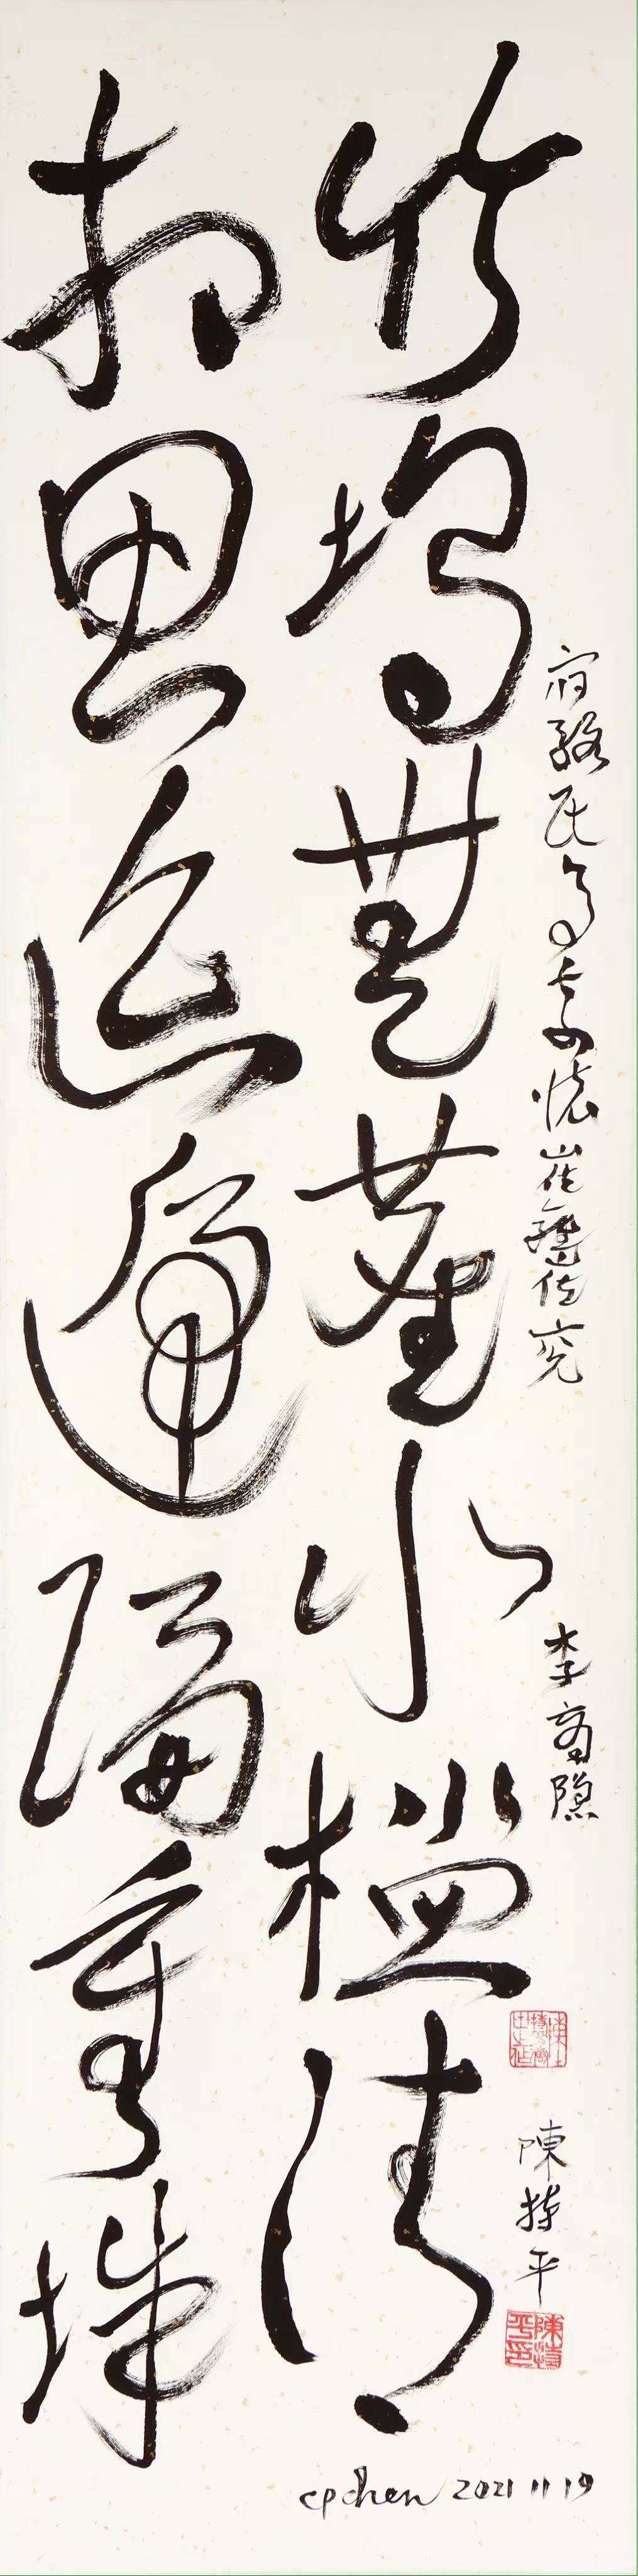 宿駱氏亭寄懷崔雍崔兗
李商隐
竹塢無塵水檻清
相思迢遞隔重城
陳持平
陳持平印
cpchen 2021 11 19